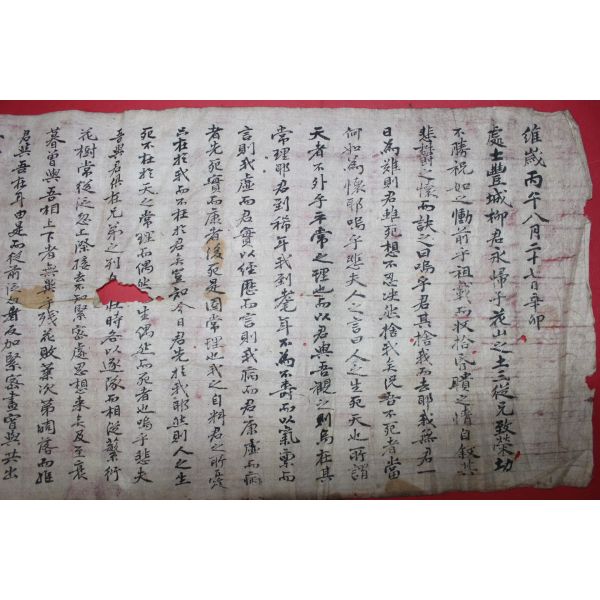 維歲丙午八月二十八日辛卯
處士豐城柳君永歸于花山之土三從兄致榮切
不勝祝如之慟前于祖載而收拾昏聵之情自叙其
悲欝之懷而訣之曰嗚乎君其捨我而去耶我無君一
日爲難則君雖死想不忍决然捨我矣况吾不死者當
何如爲懷耶嗚乎悲夫人之言曰人之生死天也所謂
天者不外乎平常之理也而以君與吾觀之則烏在其
常理耶君到稀年我到耄年不爲不壽而以氣稟而
言則我虛而君實以經歷而言則我病而君康虛而病
者先死實而康者後死是固常理也我之自料君之所
只在於我而不在於君矣豈知今日君先於我耶然則人之生
死不在於天之常理而偶然生偶然而死者也嗚乎悲夫
吾與君俱在兄弟之列 壯時各以逐隊而相從蘩衍
花樹常從泛忽上際接去不知緊密處思想來矣及至衰
暮曾與吾相上下者無異乎殘花敗葉次第凋落而惟
君與吾在 由是而從前泛 者反加緊密晝宵與共出